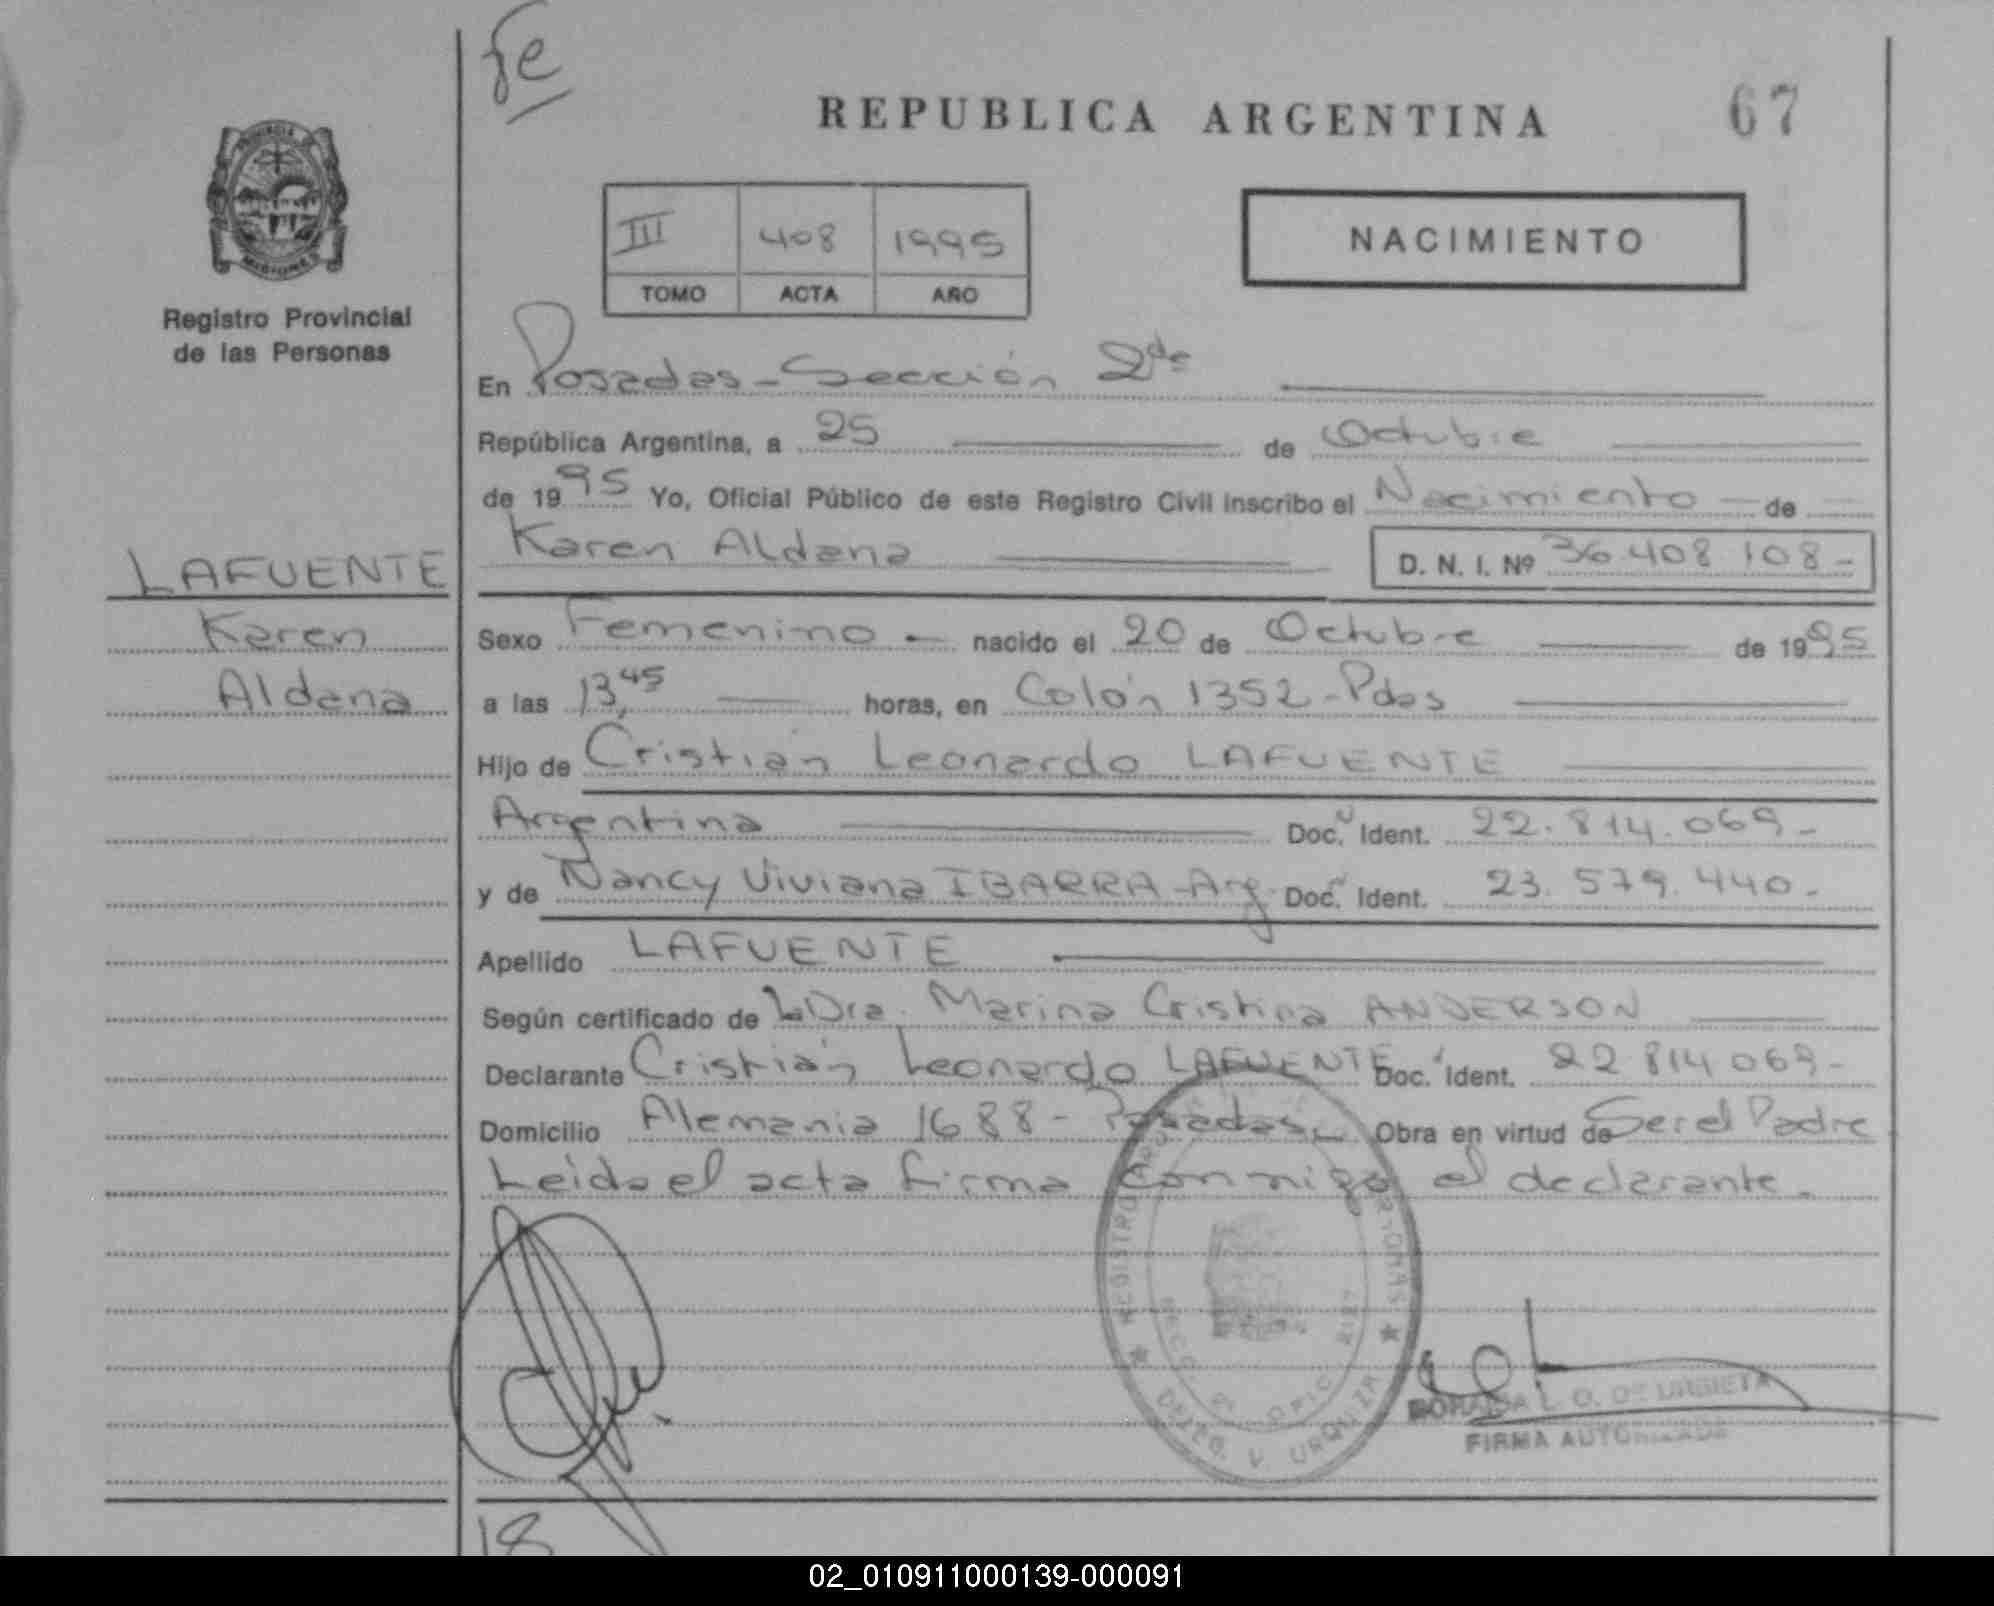 fe
REPUBLICA ARGENTINA
67
PROVINCIA
MISIONES
Registro Provincial
de las Personas
III 408 1995
TOMO ACTA AÑO
NACIMIENTO
En Posadas - Sección 2da
República Argentina, a 25 de Octubre
de 1995 Yo, Oficial Público de este Registro Civil inscribo el Nacimiento de
Karen Aldana D. N. I. Nº 36.408.108-
LAFUENTE
Karen
Aldana
Sexo Femenino - nacido el 20 de Octubre de 1995
a las 13,45 horas, en Colón 1352 - Pdas
Hijo de Cristián Leonardo LAFUENTE
Argentina Doc. Ident. 22.814.069-
y de Nancy Viviana IBARRA - Arg. Doc. Ident. 23.579.440-
Apellido LAFUENTE
Según certificado de La Dra. Marina Cristina ANDERSON
Declarante Cristián Leonardo LAFUENTE Doc. Ident. 22 814 069-
Domicilio Alemania 1688 - Posadas Obra en virtud de Ser el Padre
Leida el acta firma conmigo el declarante.
REGISTRO
URQUIZA
L. O. DE URBIETA
FIRMA AUTORIZADA
18
02_010911000139-000091